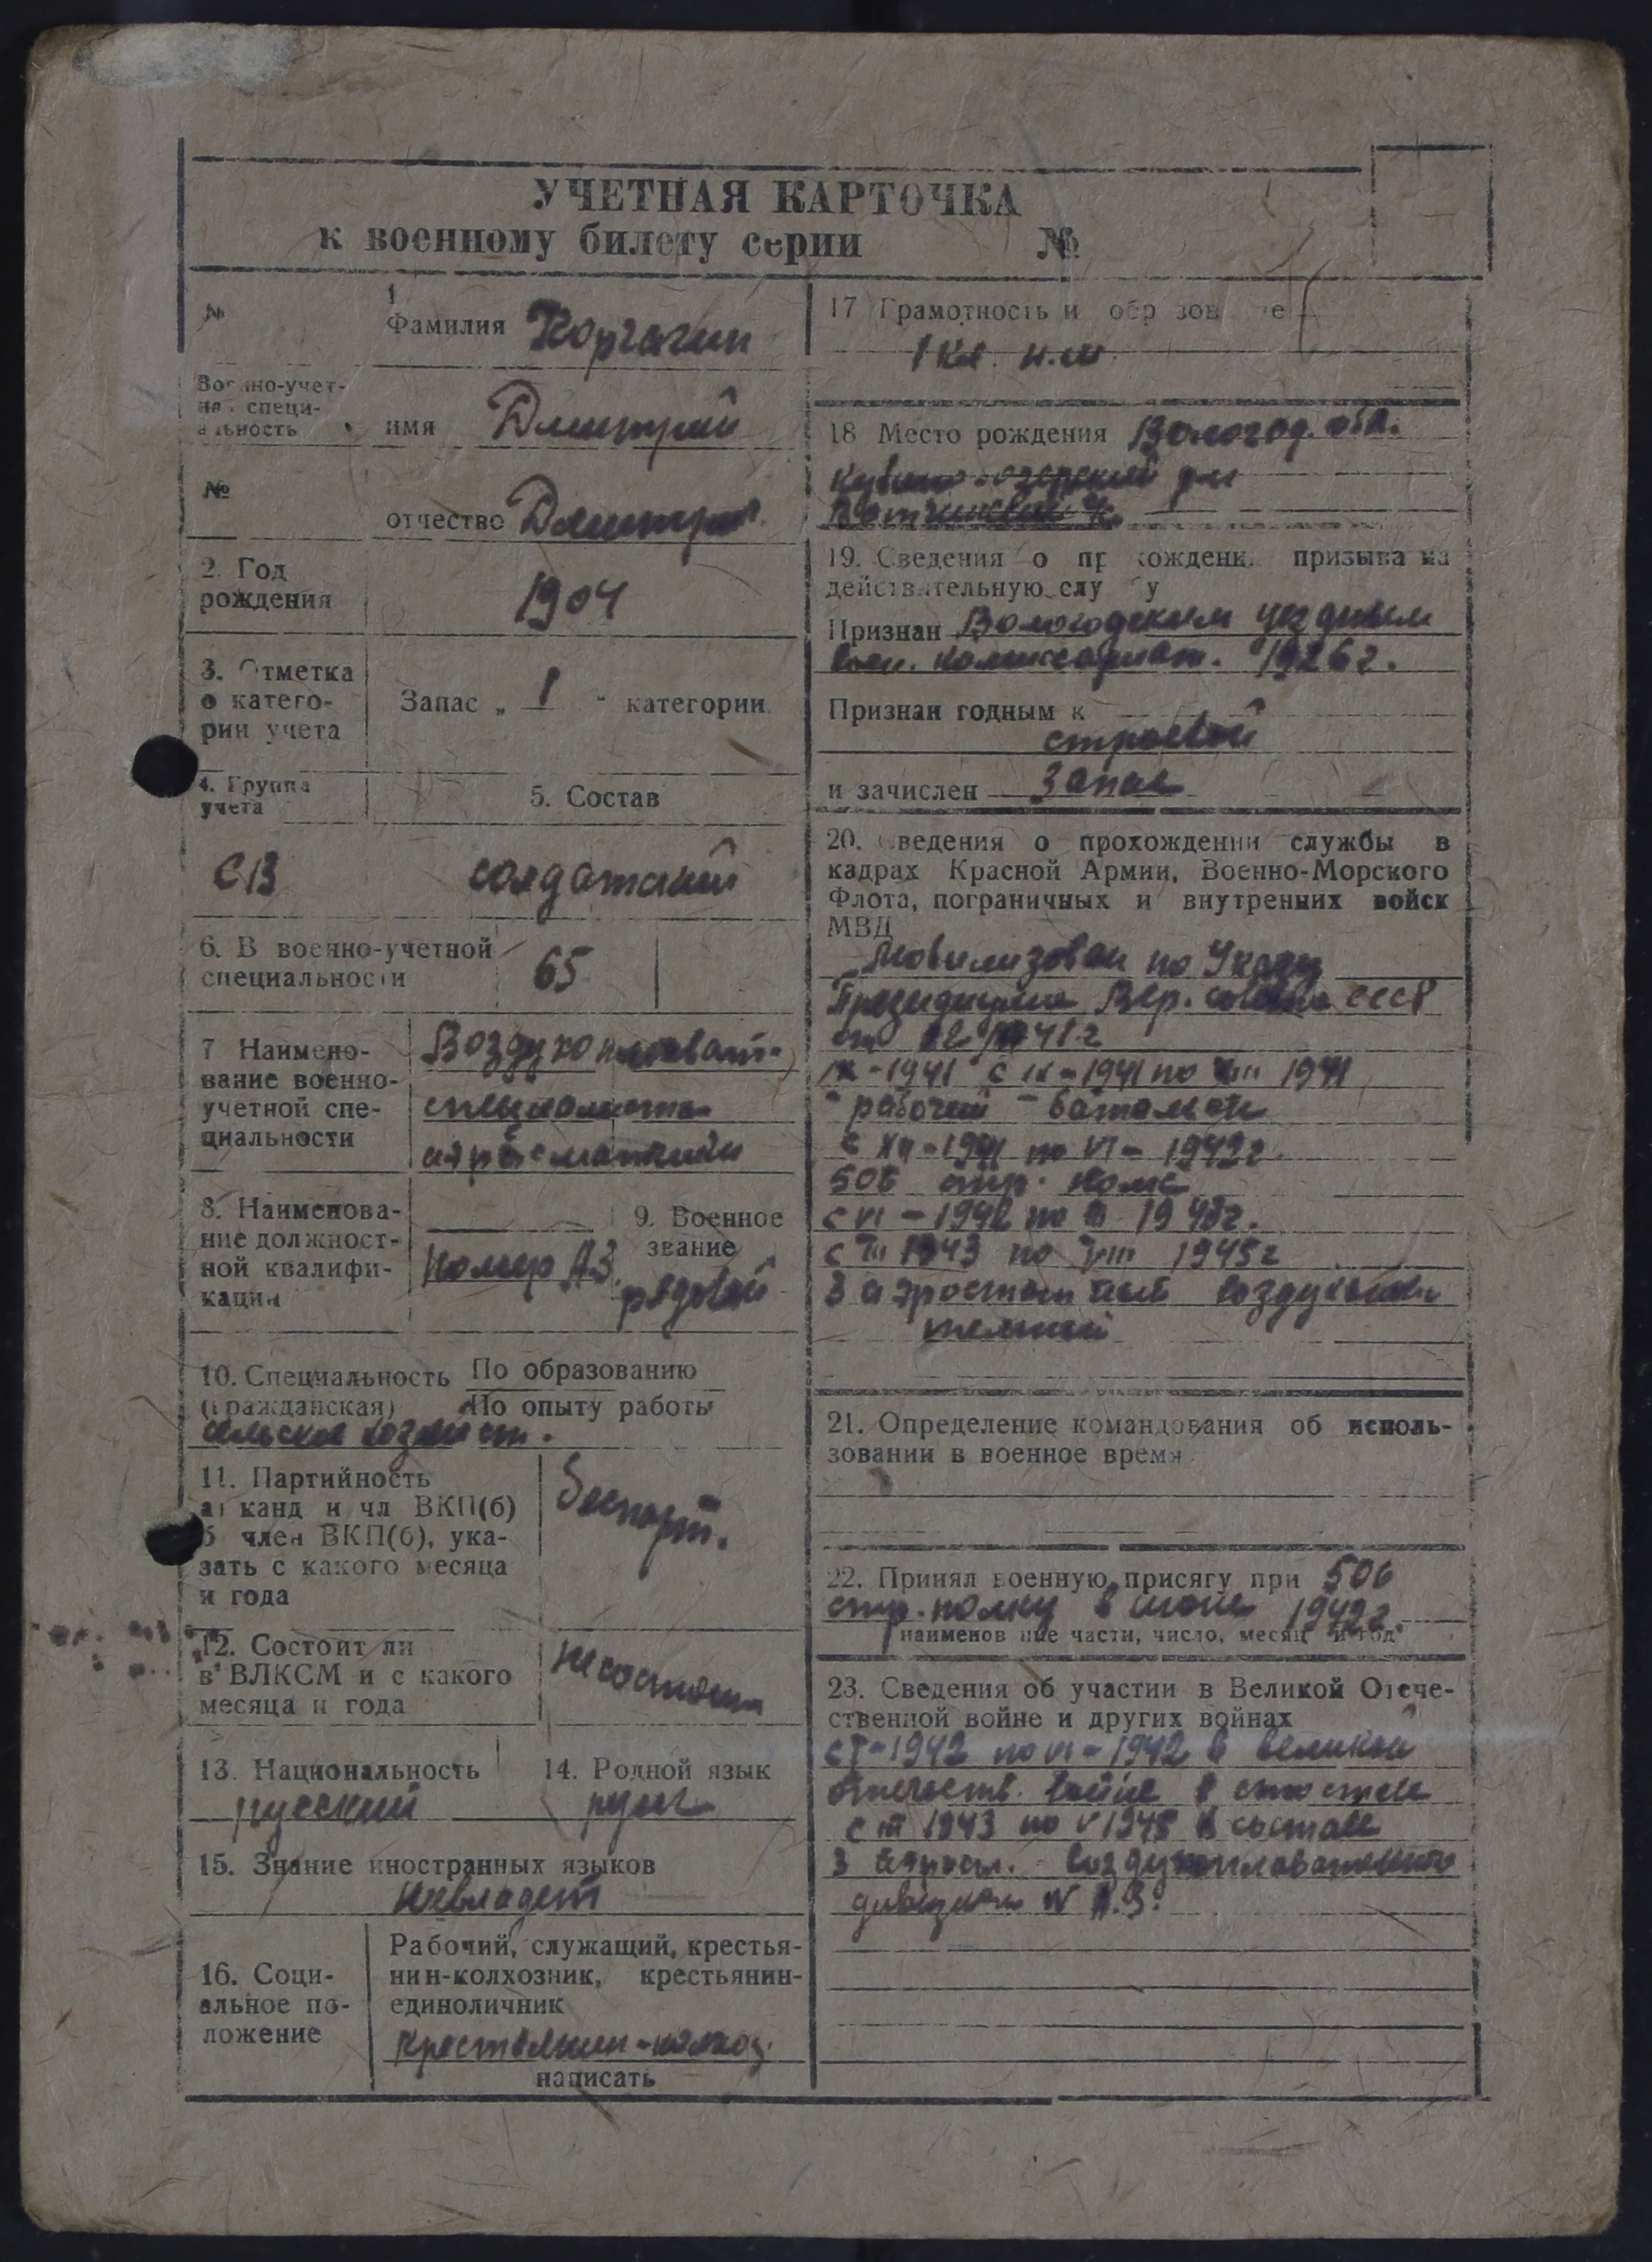 УЧЕТНАЯ КАРТОЧКА
к военному билету серии №
№
1
Фамилия Корчагин
Военно-учет-
ная специ-
альность
имя Дмитрий
№
отчество Дмитри
2. Год
рождения
1904
3. Отметка
о катего-
рии учета
Запас „ 1 - категории
4. Группа
учета
5. Состав
СВ солдатский
6. В военно-учетной
специальности
65
7 Наимено-
вание военно-
учетной спе-
циальности
Воздухоплават-
8. Наименова-
ние должност-
ной квалифи-
кации
Номер АЗ.
9. Военное
звание
рядовой
10. Специальность По образованию
(гражданская) По опыту работы
сельское хозяйст.
11. Партийность
а) канд и чл ВКП(б)
б член ВКП(б), ука-
зать с какого месяца
и года
Беспарт.
12. Состоит ли
в ВЛКСМ и с какого
месяца и года
не состоит
13. Национальность
русский
14. Родной язык
русс
15. Знание иностранных языков
Невладеет
16. Соци-
альное по-
ложение
Рабочий, служащий, крестья-
нин-колхозник, крестьянин-
единоличник
Крестьянин-колхоз.
написать
17 Грамотность и обр зов е
1 кл. н.ш.
18 Место рождения Вологод. обл.
Кубино-озерский р-н
19. Сведения о пр хождени призыва на
действительную слу у
Признан Вологодским уездным
воен. комиссариат. 1926 г.
Признан годным к
строевой
и зачислен Запас
20. Сведения о прохождении службы в
кадрах Красной Армии, Военно-Морского
Флота, пограничных и внутренних войск
МВД
Мобилизован по Указу
Президиума Вер. совета СССР
от 1941 г
IX-1941 с IX-1941 по 1941
рабочий батальон
с XII-1941 по VI- 1942 г.
506 стр. полк
с VI - 1942 по III 1943 г.
с III 1943 по VIII 1945 г
3 аэростатный воздухоплава
тельный
21. Определение командования об исполь-
зовании в военное время
22. Принял военную присягу при 506
стр. полку в июне 1942 г.
наименов ние части, число, месяц и год
23. Сведения об участии в Великой Отече-
ственной войне и других войнах
с I-1942 по VI-1942 в великой
отечеств. войне в
с III 1943 по V 1945 в составе
3 аэрост. воздухоплавательного
дивизион А.З.